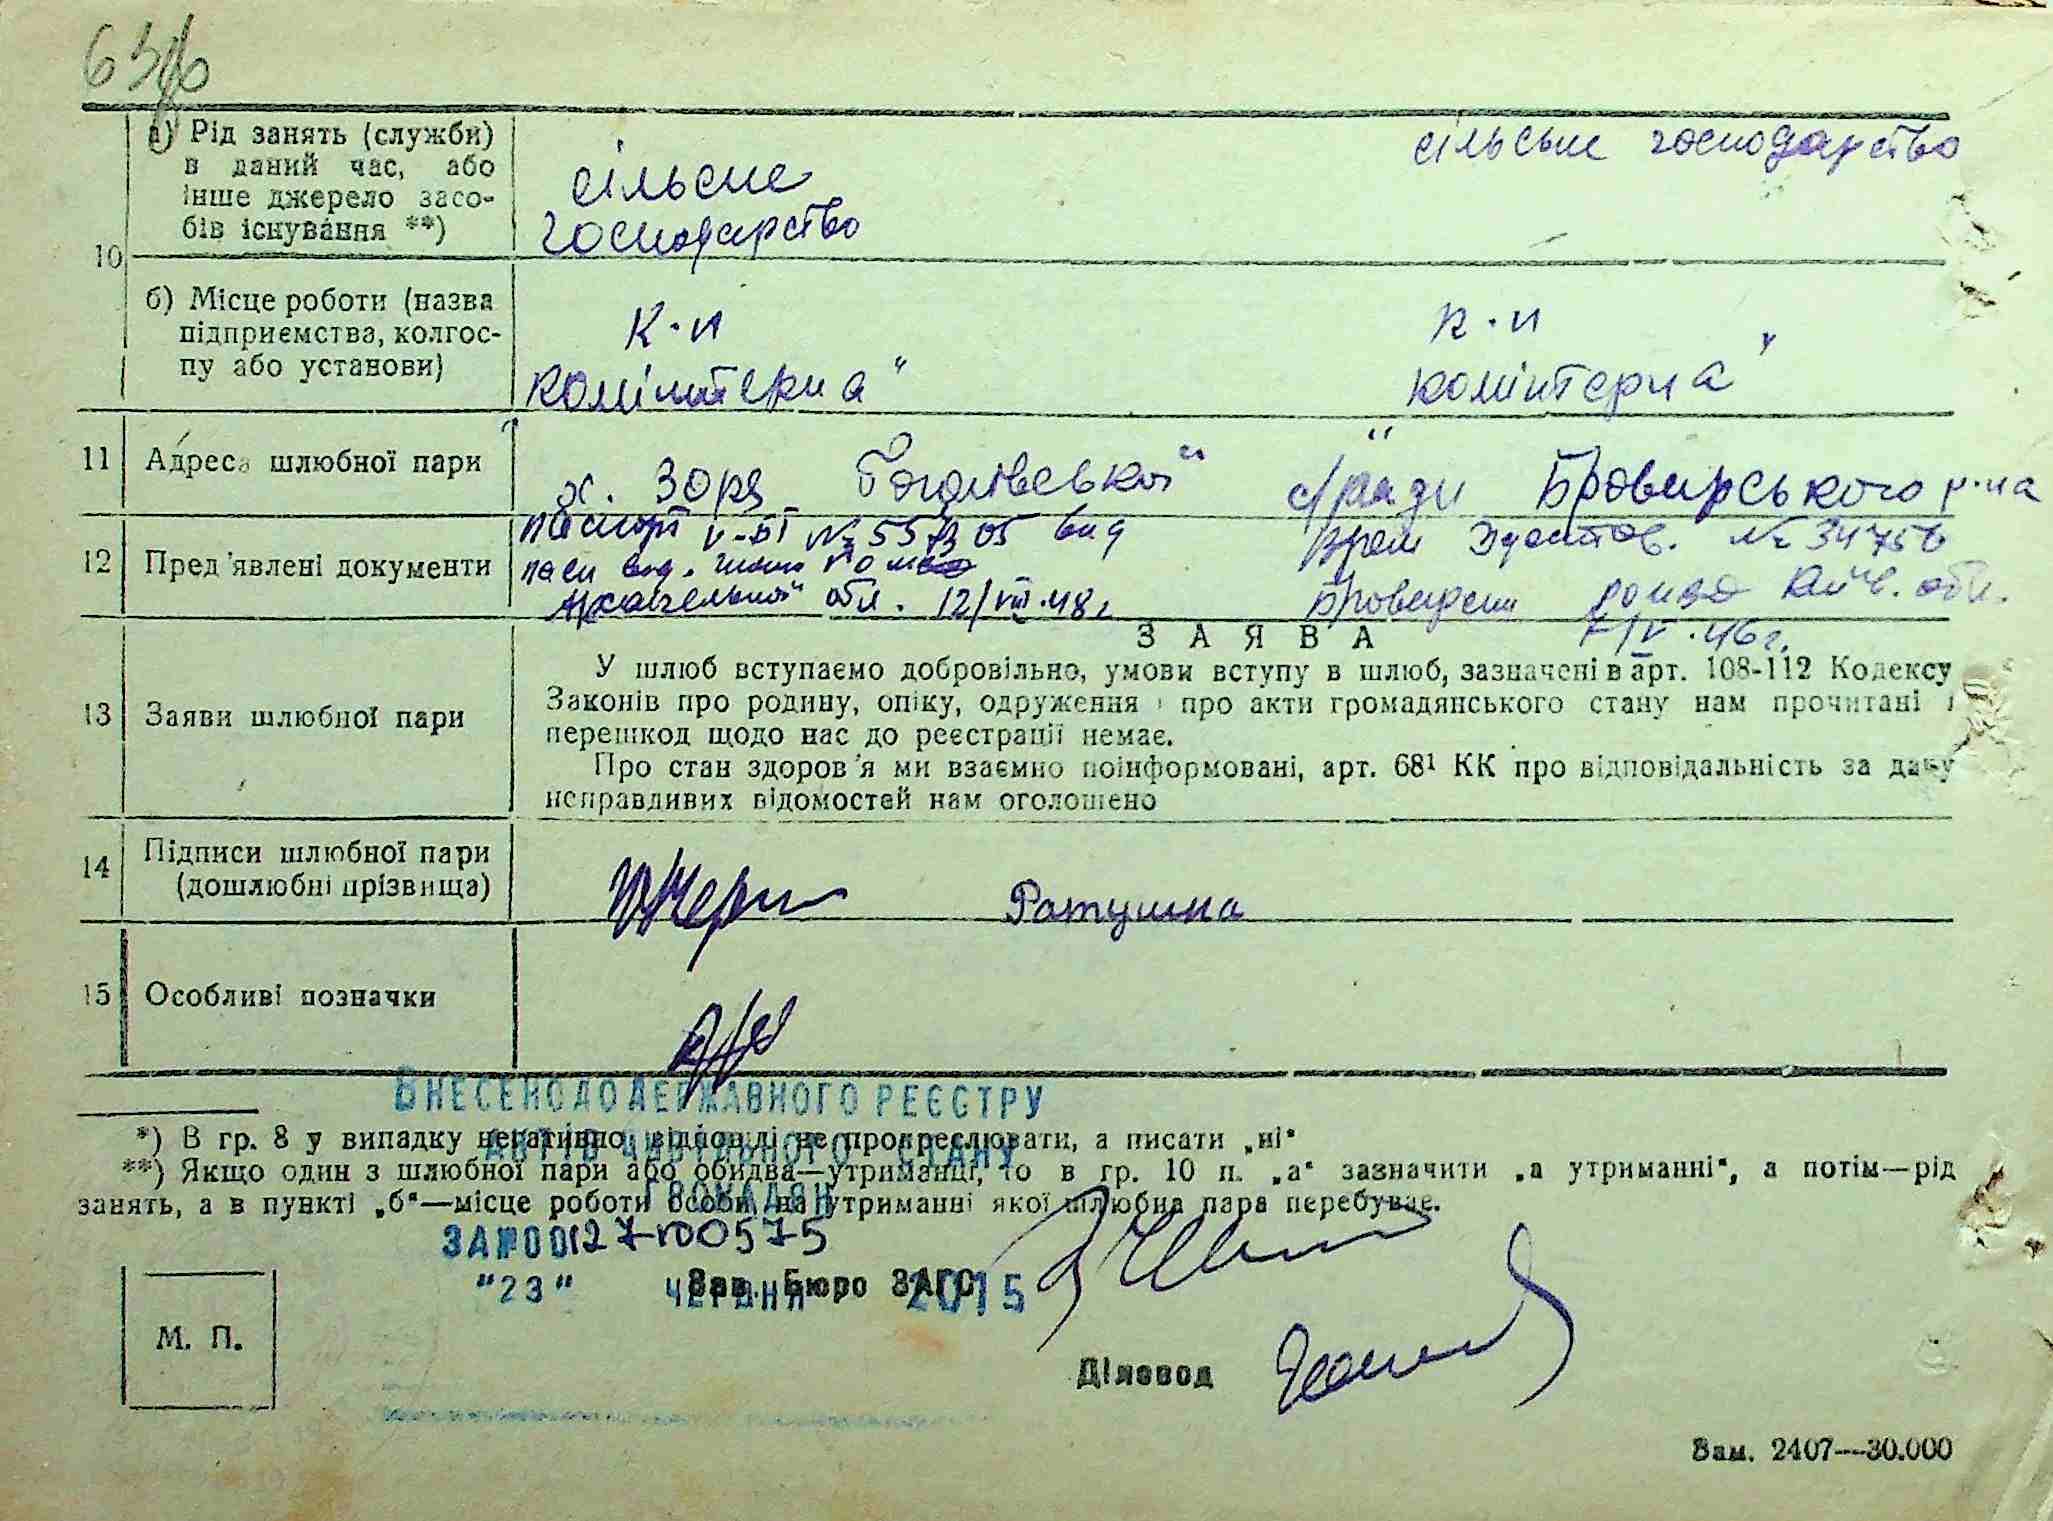 а) Рід занять (служби)
в даний час, або
інше джерело засо-
бів існування **)
сільське
господарство
сільське господарство
10
б) Місце роботи (назва
підприємства, колгос-
пу або установи)
к-п
комінтерна"
к-п
комінтерна"
11 Адреса шлюбної пари
х. Зоря Гоголівської с/ради Броварського р-на
12 Пред'явлені документи
паспорт V-БТ № вид
Архангельской обл. 12/VIII.48 г
Врем. № 34756
Броварским Киев. обл.
46 г.
ЗАЯВА
13 Заяви шлюбної пари
У шлюб вступаємо добровільно, умови вступу в шлюб, зазначені в арт. 108-112 Кодексу
Законів про родину, опіку, одруження і про акти громадянського стану нам прочитані і
перешкод щодо нас до реєстрації немає.
Про стан здоров'я ми взаємно поінформовані, арт. 68¹ КК про відповідальність за дачу
неправдивих відомостей нам оголошено
14 Підписи шлюбної пари
(дошлюбні прізвища)
Ратушна
15 Особливі позначки
ВНЕСЕНО ДО ДЕРЖАВНОГО РЕЄСТРУ
АКТІВ ЦИВІЛЬНОГО СТАНУ
ГРОМАДЯН
ЗА №00127100575
"23" ЧЕРВНЯ 2015
*) В гр. 8 у випадку негативної відповіді не прокреслювати, а писати „ні"
**) Якщо один з шлюбної пари або обидва—утриманці, то в гр. 10 п. „а" зазначити „а утриманні", а потім—рід
занять, а в пункті „б"—місце роботи особи, на утриманні якої шлюбна пара перебуває.
Зав. Бюро ЗАГС
М. П.
Діловод
Зам. 2407—30.000